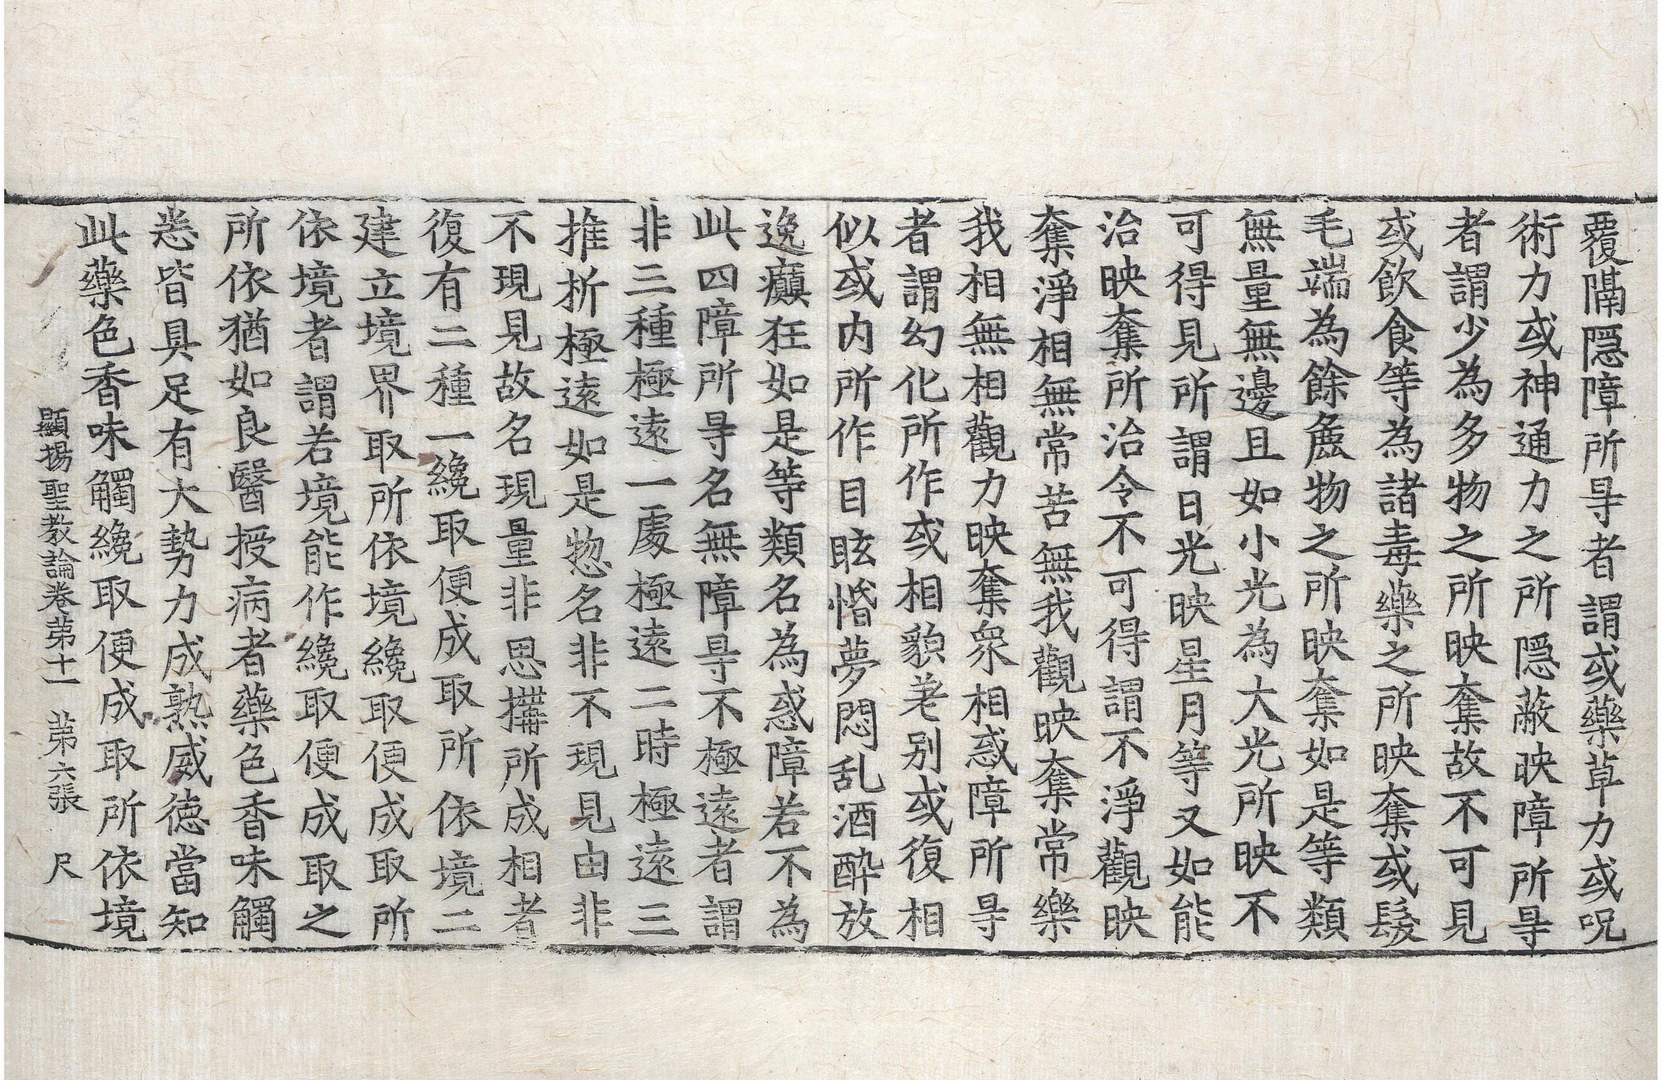 覆隔隠障所㝵者謂或藥草力或呪
術力或神通力之所隠蔽映障所㝵
者謂少為多物之所映奪故不可見
或飲食等為諸毒藥之所映奪或髮
毛端為餘麁物之所映奪如是等類
無量無邊且如小光為大光所映不
可得見所謂日光映星月等又如能
治映奪所治令不可得謂不淨觀映
奪淨相無常苦無我觀映奪常樂
我相無相觀力映奪衆相惑障所㝵
者謂幻化所作或相貌差別或復相
似或内所作目眩惛夢悶乱酒醉放
逸癲狂如是等類名為惑障若不為
此四障所㝵名無障㝵不極遠者謂
非三種極遠一處極遠二時極遠三
推折極遠如是惣名非不現見由非
不現見故名現量非思搆所成相者
復有二種一纔取便成取所依境二
建立境界取所依境纔取便成取所
依境者謂若境能作纔取便成取之
所依猶如良醫授病者藥色香味觸
悉皆具足有大勢力成熟威德當知
此藥色香味觸纔取便成取所依境
顯揚聖教論卷苐十一 苐六張 尺